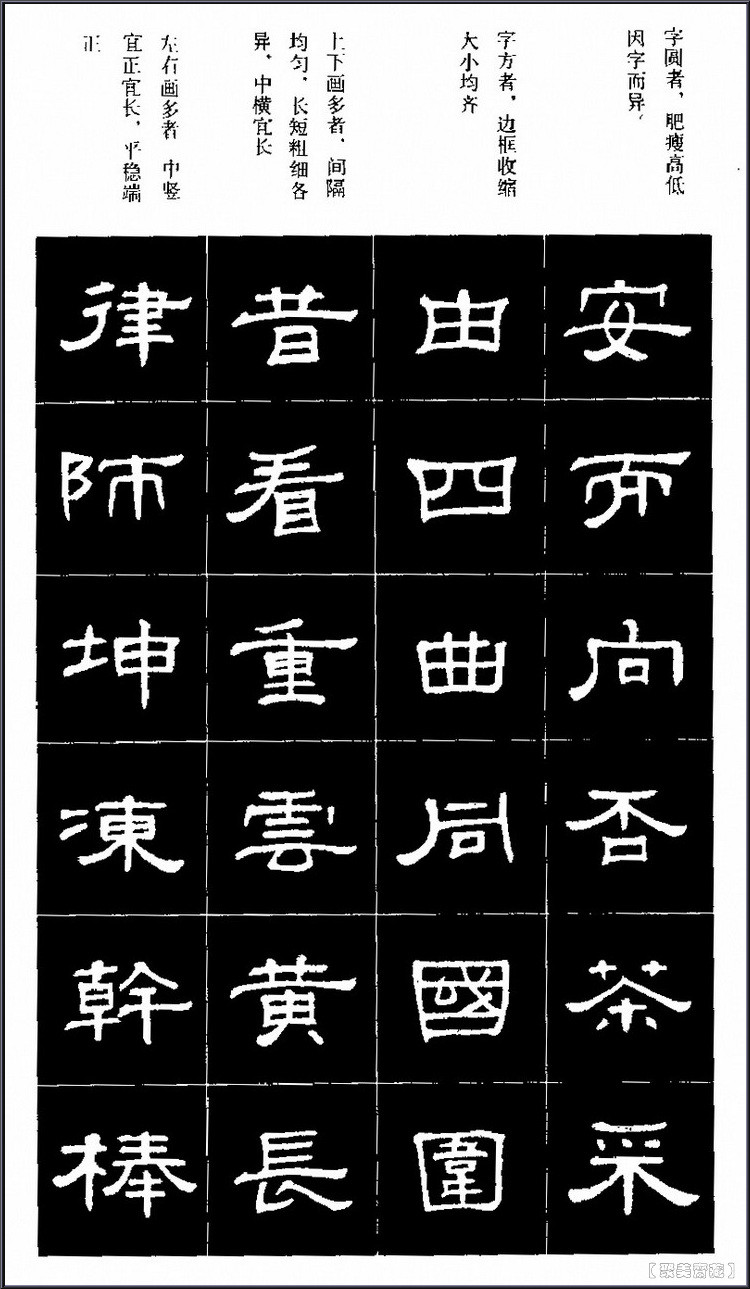 字圆者，肥瘦高低
因字而异。
字方者，边框收缩
大小均齐
上下画多者，间隔
均匀，长短粗细各
异，中横宜长
左右画多者 中竖
宜正宜长，平稳端
正
安而向否茶采
由四曲同國圍
昔看重雲黄長
律师坤凍幹棒